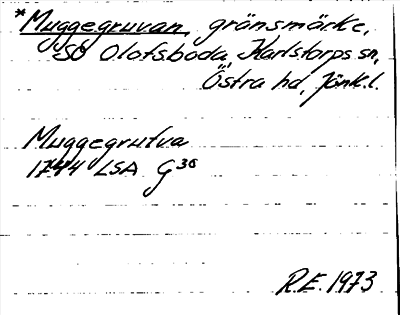 *Muggegruvan, gränsmärke,
SÖ Olofsboda, Karlstorps sn,
Östra hd, Jönk.l.
Muggegrufva
1744 LSA G 36
R.E. 1973